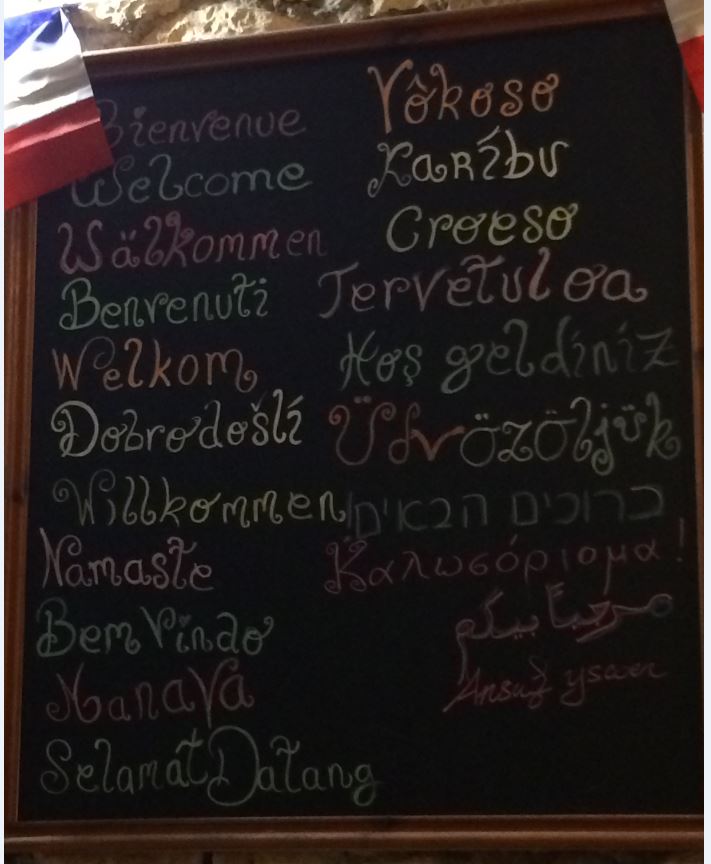 Bienvenue
Welcome
Wälkommen
Benvenuti
Welkom
Dobrodošlí
Willkommen
Namaste
Bem Vindo
Manava
Selamat Datang
Yôkoso
Karibu
Croeso
Tervetuloa
Hoş geldiniz
Üdvözöljük
ברוכים הבאים
Καλωσόρισμα!
مرحباً بيكم
Ansuf yswen